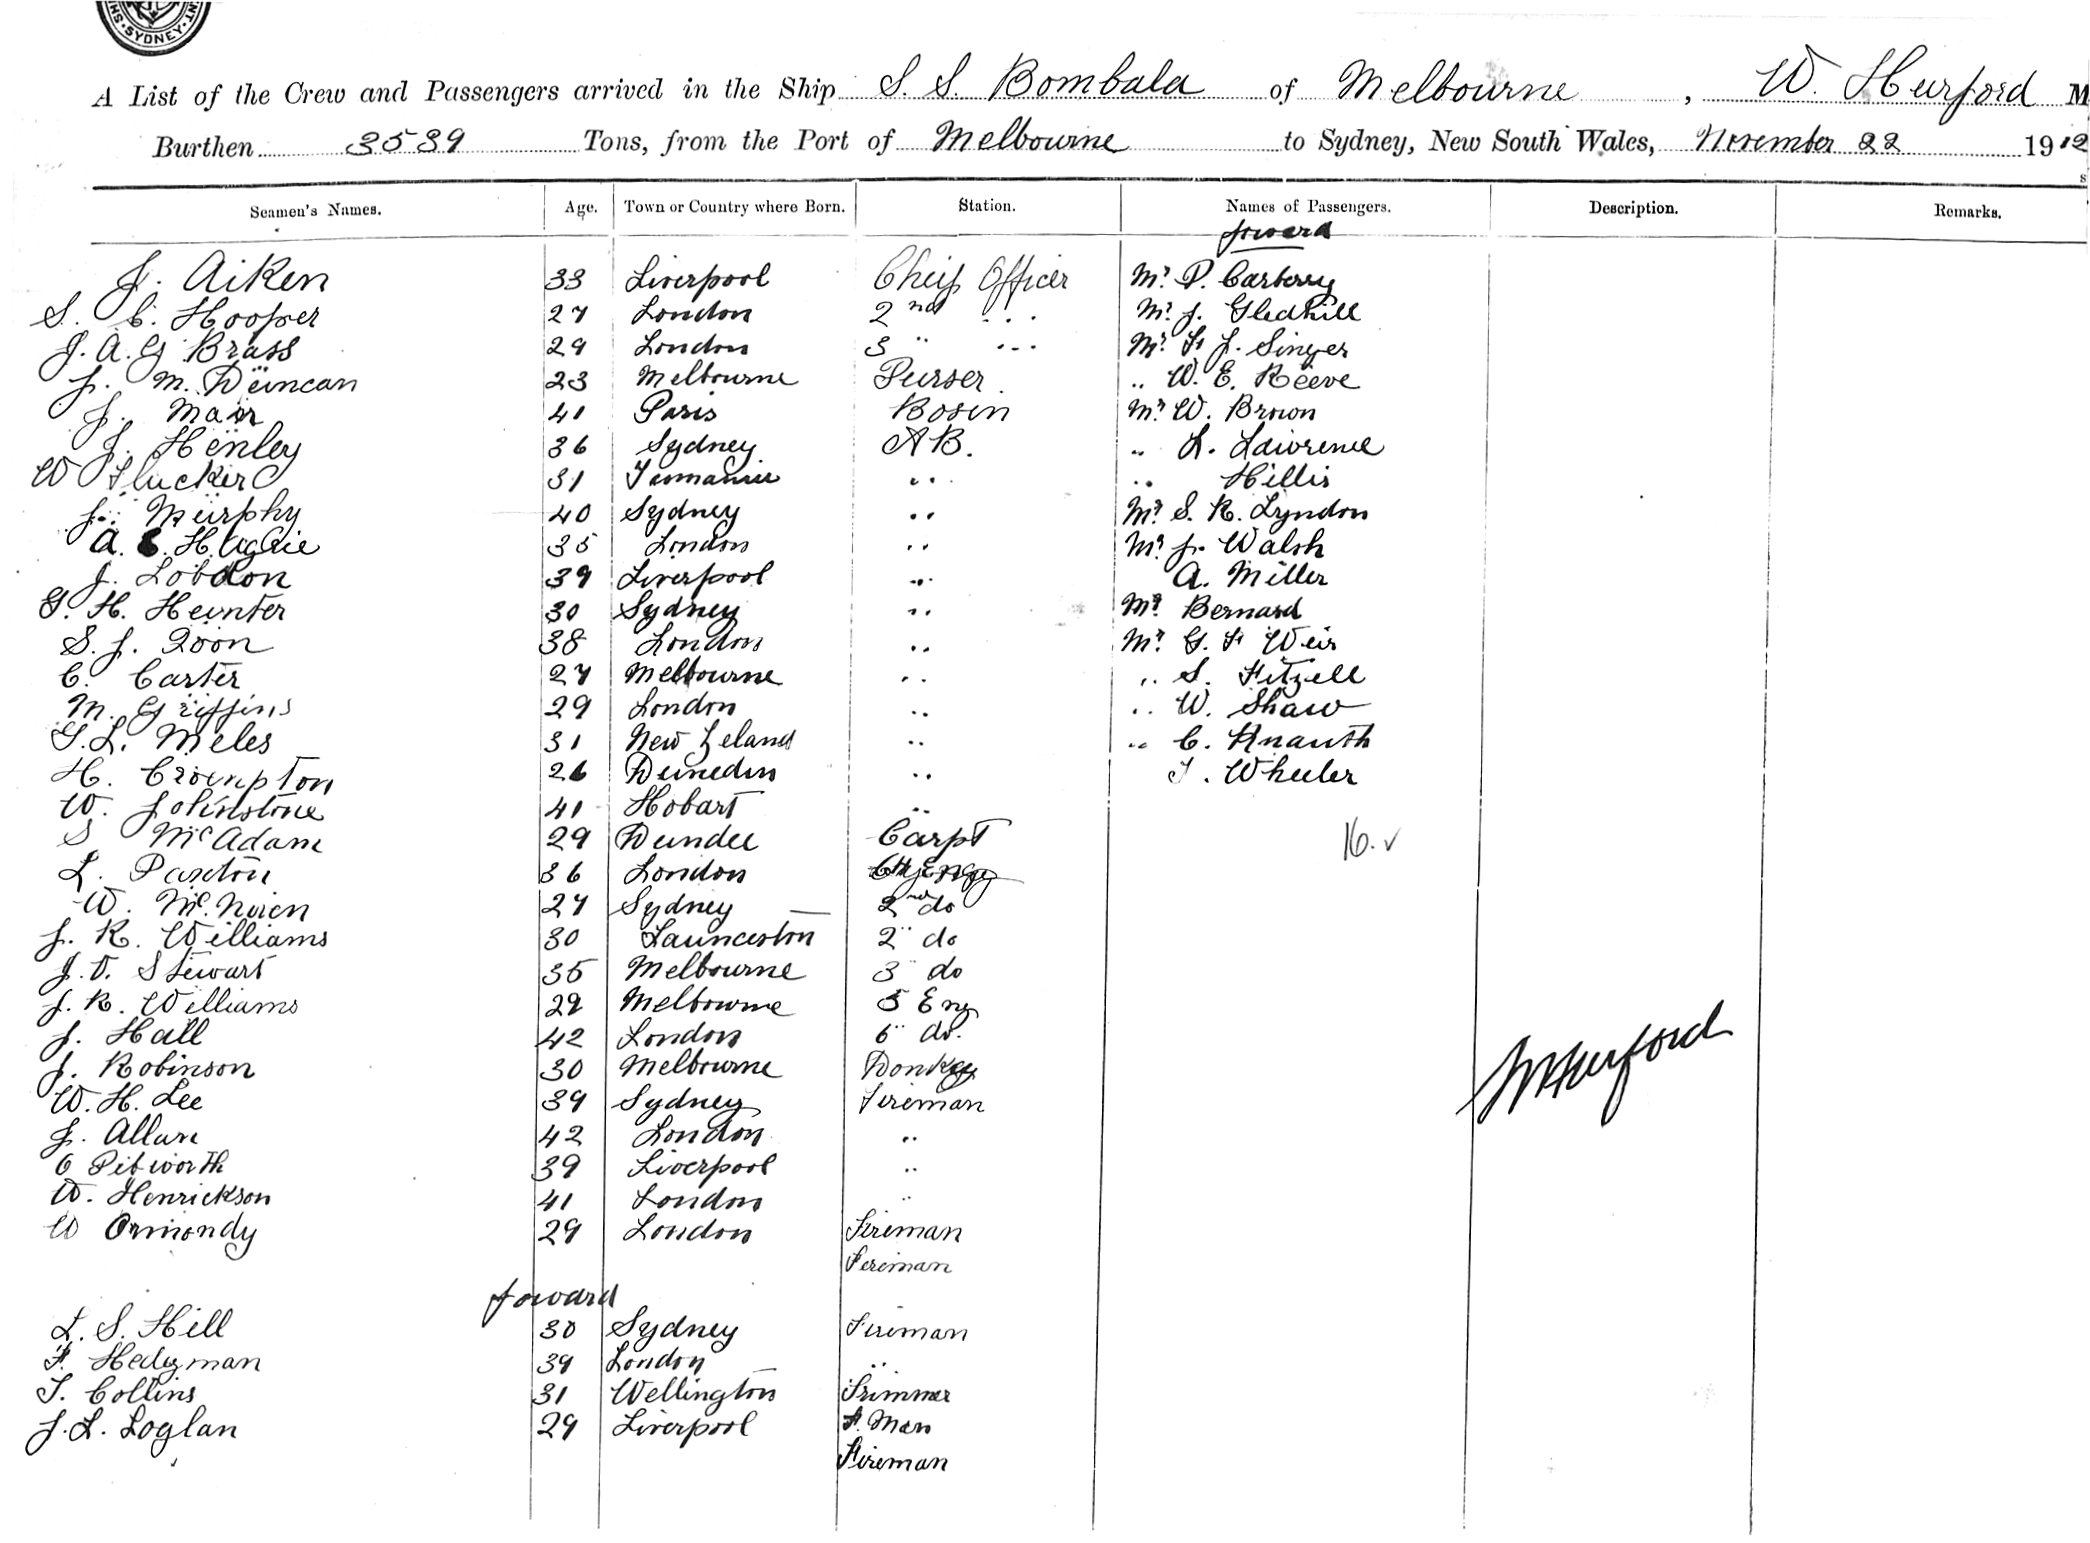 SYDNEY
A List of the Crew and Passengers arrived in the Ship S. S. Bombala of Melbourne, W. Hurford M
Burthen 3539 Tons, from the Port of Melbourne to Sydney, New South Wales, November 22 1912
Seamen's Names. Age. Town or Country where Born. Station. Names of Passengers. Description. Remarks.
forward
J. Aiken 33 Liverpool Cheif Officer Mr. P. Carberry
S. C. Hooper 27 London 2nd ... Mr. J. Gledhill
J. A. G Brass 29 London 3 " ... Mr. F. J. Singer
J. M. Duncan 23 Melbourne Purser .. W. E. Reeve
J. Mair 41 Paris Bosin Mr. W. Brown
J. Henley 36 Sydney AB. .. L. Lawrence
W Flucker 31 Tasmania .. .. Hillis
J. Murphy 40 Sydney .. Mr. S. R. Lyndon
A. H. 35 London .. Mr. J. Walsh
J. Lobdon 39 Liverpool .. A. Miller
G. H. Hunter 30 Sydney .. Mr. Bernard
S. J. 38 London .. Mr. G. F Weir
C. Carter 27 Melbourne .. .. S. Fitzell
M. Griffins 29 London .. .. W. Shaw
G. L. Meles 31 New Zeland .. .. C. Knauth
H. Crompton 26 Dunedin .. T. Wheeler
W. Johnstone 41 Hobart ..
S McAdam 29 Dundee Carpt 16. ✓
L. Paxton 36 London Ch Eng
W. 27 Sydney 2nd do
J. R. Williams 30 Launceston 2" do
J. D. Stewart 35 Melbourne 3" do
J. R. Williams 29 Melbourne 5 Eng
J. Hall 42 London 6" do.
J. Robinson 30 Melbourne Donkey
W Hurford
W. H. Lee 39 Sydney Fireman
J. Allan 42 London ..
O Pitworth 39 Liverpool ..
W. Henrickson 41 London ..
W Ormondy 29 London Fireman
Fireman
forward
L. S. Hill 30 Sydney Fireman
F. Hedgman 39 London ..
T. Collins 31 Wellington Trimmer
J. L. Loglan 29 Liverpool F. Man
Fireman